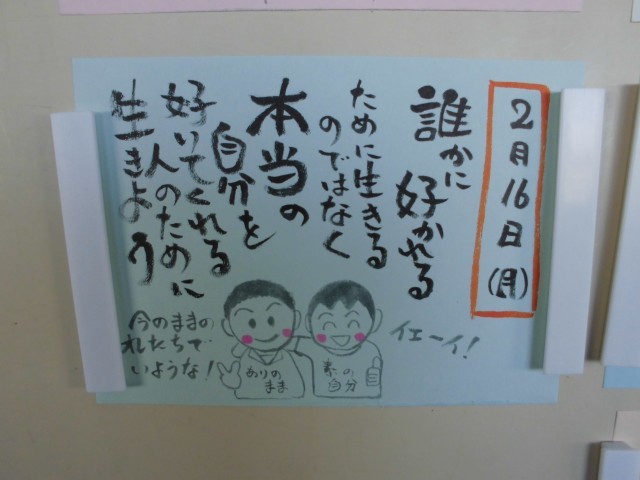 2月16日(月)
誰かに
好かれる
ために生きる
のではなく
本当の
自分を
好いてくれる
人のために
生きよう
イエーイ!
素の
自分
ありの
まま
今のままの
オレたちで
いような!